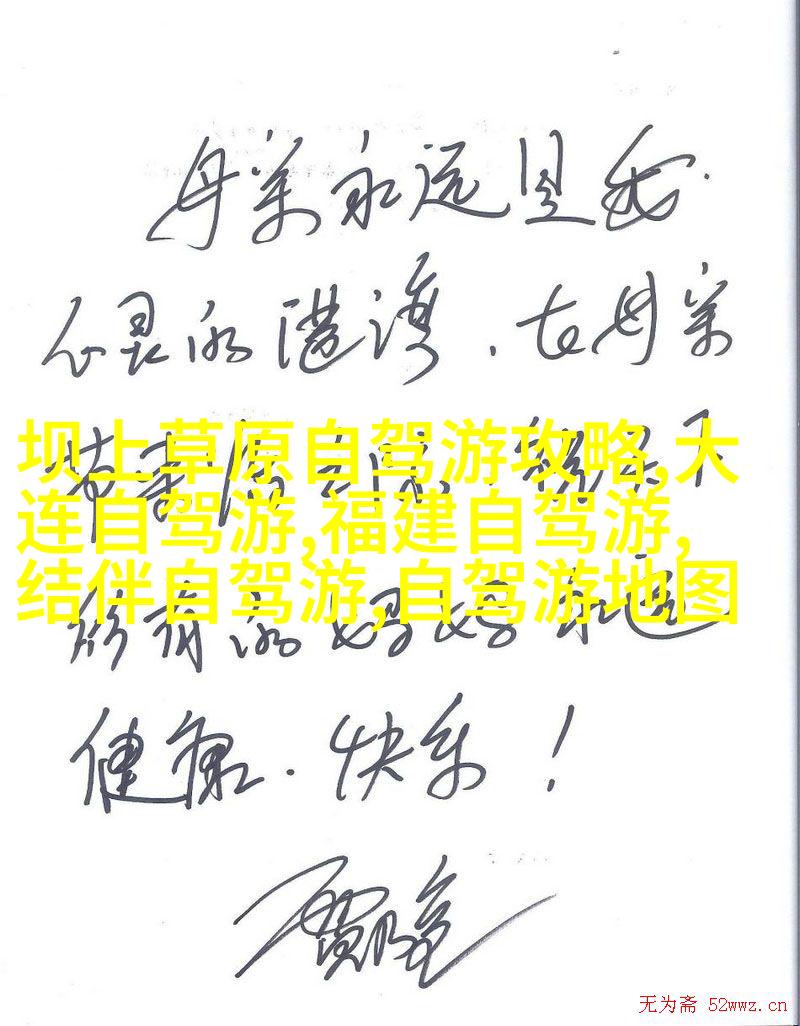 母亲永远是我
心灵的港湾.在母亲
坝上草原自驾游攻略,大
连自驾游,福建自驾游,
结伴自驾游,自驾游地图
所有的妈妈永远
健康.快乐!
无为斋 52wwz.cn